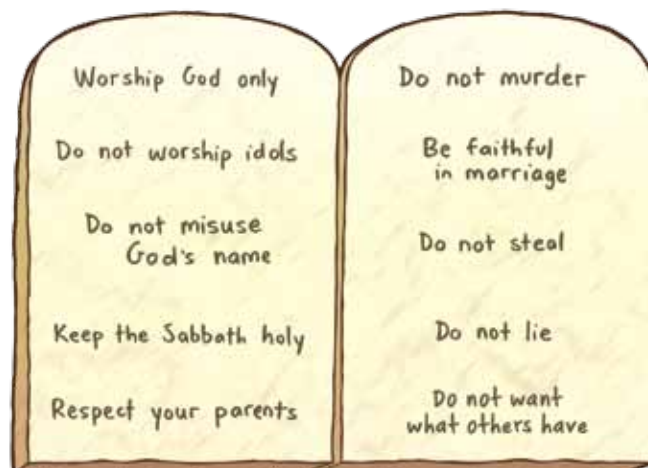 Worship God only
Do not worship idols
Do not misuse
God's name
Keep the Sabbath holy
Respect your parents
Do not murder
Be faithful
in marriage
Do not steal
Do not lie
Do not want
what others have